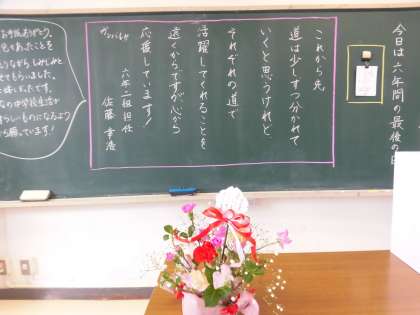 今日は六年間の最後の日
これから先
道は少しずつ分かれて
いくと思うけれど、
それぞれの道で
活躍してくれることを
遠くからですが心から
応援しています！
六年二組担任
佐藤
お手紙ありがとう。
あったことを
ながらしみじみと
せてもらいました。
なの中学校生活が
らしいものになるよう
ら願っています！